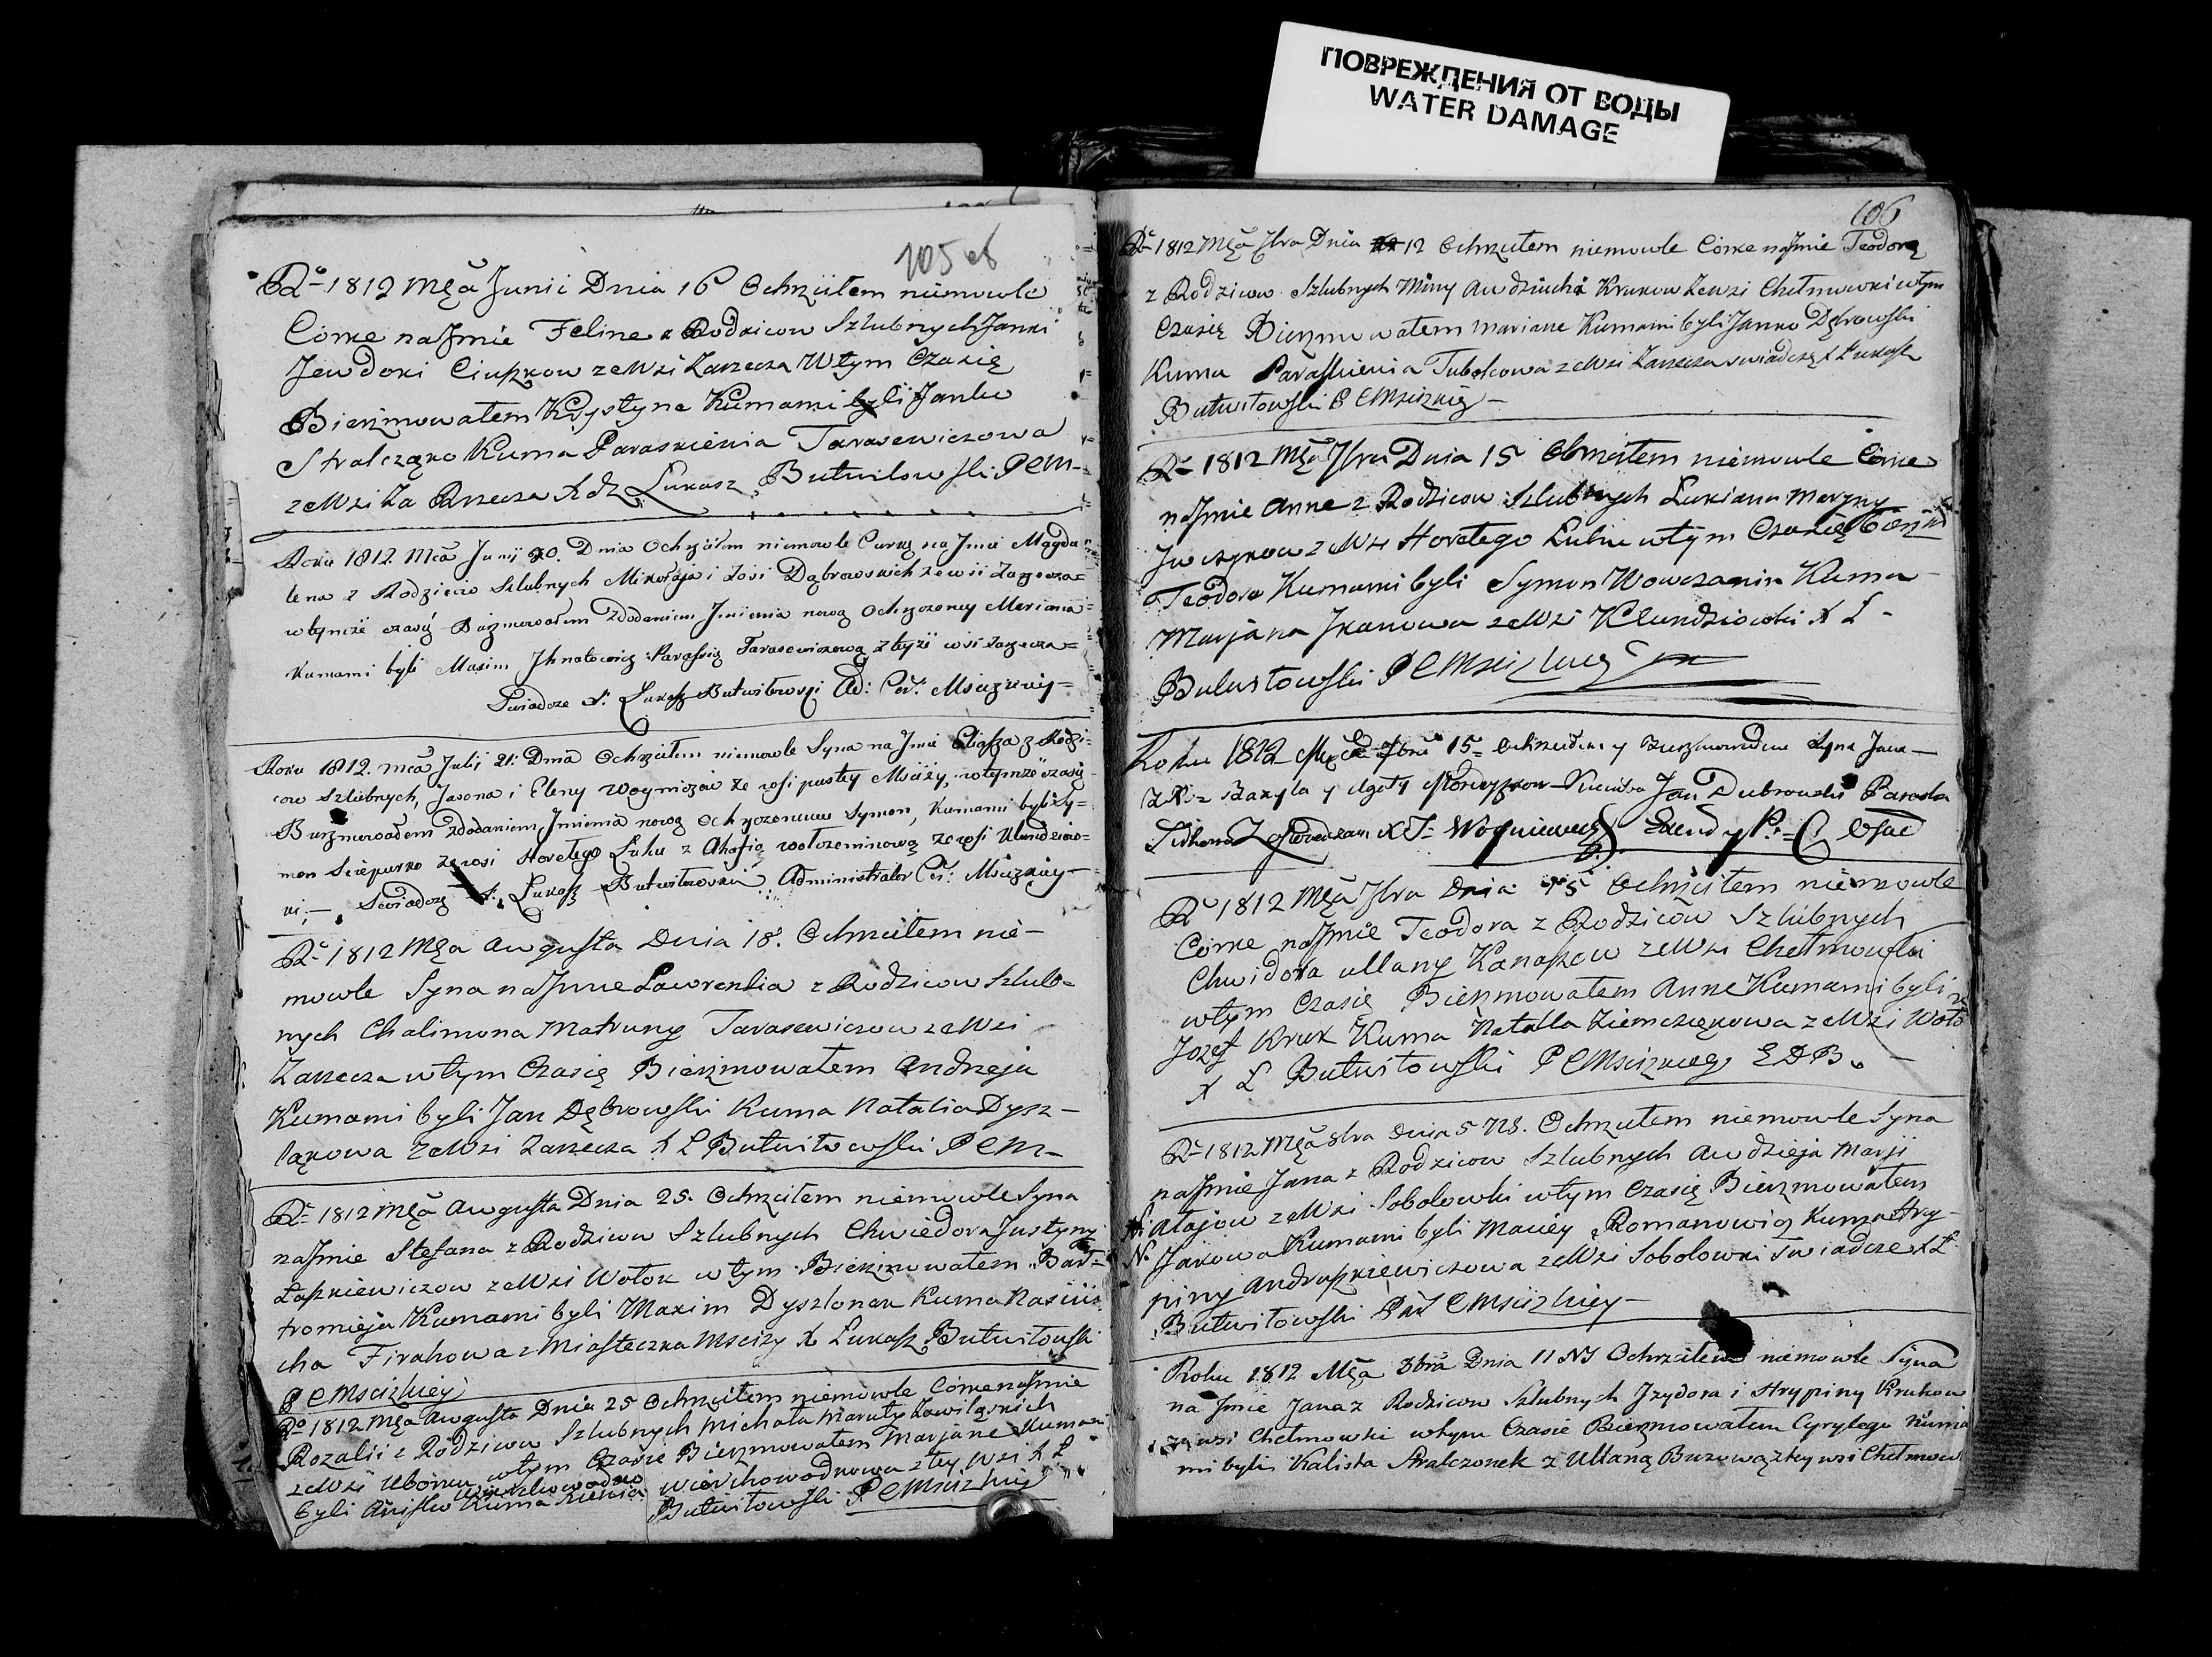 ПОВРЕЖДЕНИЯ ОТ ВОДЫ
WATER DAMAGE
105 об
Rº 1812 Mca Junii Dnia 16 Ochrzciłem niemowle
Corke na Jmie Feline z Rodzicow Szlubnych Janki
Jewdoki Ciupkow ze Wsi Zarzecza W tym Czasię
Bierzmowałem Krystyne Kumami byli Janku
Stralcząko Kuma Paraskiewia Tarasewiczowa
ze Wsi Za Rzecza Xdz Łukasz Butwiłowski P C M
Roku 1812. Mca Junij 20. Dnia Ochrzciłem niemowle Curkę na Jmie Magda
lena z Rodzicow Szlubnych Mikołaja i Zosi Dąbrowskich ze wsi Zarzecza
w tymże czasię Bierzmowałem z dodaniem Jmienia nowo Ochrzczoney Meriana
Kumami byli Maxim Jhnatowicz Parassią Tarasewiczową z teyże wsi Zarzecza
Świadcze X: Łukasz Butwiłowski Ad: Cer: Mścizkiey
Roku 1812. Mca Julij 21. Dnia Ochrzciłem niemowle Syna na Jmie Eliasza z Rodzi
cow Szlubnych, Jasona i Eleny ze wsi pustey Mściży, w tymże czasię
Bierzmowałem z dodaniem Jmienia nowo Ochrzczonemu Symon, Kumami byli Sy
mon Sciepurko ze wsi Horełego Łuhu z Ahafią ze wsi Klundziow
ki; Świadczę X: Łukasz Butwiłowski Administrator Cer: Mścizkiey
Rº 1812 Mca Awgusta Dnia 18. Ochrzciłem nie
mowle Syna na Jmie Lawrentia z Rodzicow Szlub
nych Chalimona Matruny Tarasewiczow ze Wsi
Zarzecza w tym Czasię Bierzmowałem Andrzeja
Kumami byli Jan Dębrowski Kuma Natalia Dysz
ląkowa ze Wsi Zarzecza X L Butwiłowski P C M
Rº 1812 Mca Awgusta Dnia 25. Ochrzciłem niemowle Syna
na Jmie Stefana z Rodzicow Szlubnych Chwiedora Justyny
Łapkiewiczow ze Wsi Wołok w tym Bierzmowałem Bar
tromieja Kumami byli Maxim Dyszlonak Kuma Nasciu
cha Firahowa z Miasteczka Mscizy X Łukasz Butwiłowski
P C Mscizkiey
Rº 1812 Mca Awgusta Dnia 25 Ochrzciłem niemowle Corke na Jmie
Rozalii z Rodzicow Szlubnych Michała Maruty
ze Wsi Uborku w tym Czasie Bierzmowałem Marjane Kumami
byli Anisko Wierchowodko Kuma Wierchowodkowa z tey Wsi X L
Butwiłowski P C Mscizkiey
106
Rº 1812 Mca 7bra Dnia 12 Ochrzciłem niemowle Corke na Jmie Teodorą
z Rodzicow Szlubnych Miny Awdziuchi Krukow ze Wsi Chełmowki w tym
Czasię Bierzmowałem Mariane Kumami byli Janko Dębrowski
Kuma Paraskiewia Tubolcowa ze Wsi Zarzecza swiadczę X Łukasz
Butwiłowski P C Mscizkiey
Rº 1812 Mca 7bra Dnia 15 Ochrzciłem niemowle Corke
na Jmie Anne z Rodzicow Szlubnych Łukiana Maryny
ze Wsi Horełego Łuhu w tym Czasię
Teodora Kumami byli Symon Wowczanin Kuma
Marjana Jkanowa ze Wsi Klundziowki X L
Butwiłowski P C Mscizkiey
Roku 1812 7bra 15 Ochrzciłem y Bierzmowałem Syna Jana
Bazyla y Agaty Jan Dubrowski Paraska
X J:
Rº 1812 Mca 7bra Dnia 15 Ochrzciłem niemowle
Corke na Jmie Teodora z Rodzicow Szlubnych
Chwidora Ullany Kanaszow ze Wsi Chełmowki
w tym Czasię Bierzmowałem Anne Kumami byli
Jozef Kruk Kuma Natalla Ziemczęnowa ze Wsi Woło
X L Butwiłowski P C Mscizkiey E D B
Rº 1812 Mca 8bra Dnia 5 NS. Ochrzciłem niemowle Syna
na Jmie Jana z Rodzicow Szlubnych Awdzieja Marji
Ałajow ze Wsi Sobolowki w tym Czasię Bierzmowałem
Jakowa Kumami byli Maciey Romanowicz Kuma Hry
piny Andruszkiewiczowa ze Wsi Sobolowki Swiadcze X Ł
Butwiłowski Par C Mscizkiey
Roku 1812 Mca 8bra Dnia 11 NS Ochrzciłem niemowle Syna
na Jmie Jana z Rodzicow Szlubnych Jzydora i Hrypiny Krukow
ze wsi Chełmowki w tym Czasie Bierzmowałem Cyryłego Kuma
mi byli Kalista Stralczonek z Ullaną Buzową z tey wsi Chełmow